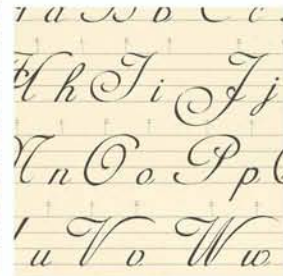 B b C c
H h I i J j
N n O o P p
u V v W w